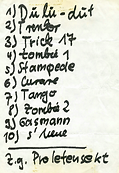 1) Dülü-düt
2) Trenker
3) Trick 17
4) Zombie 1
5) Stampede
6) Curare
7) Tango
8) Zombie 2
9) Gasmann
10) s'Neue
z.g. Proletensekt